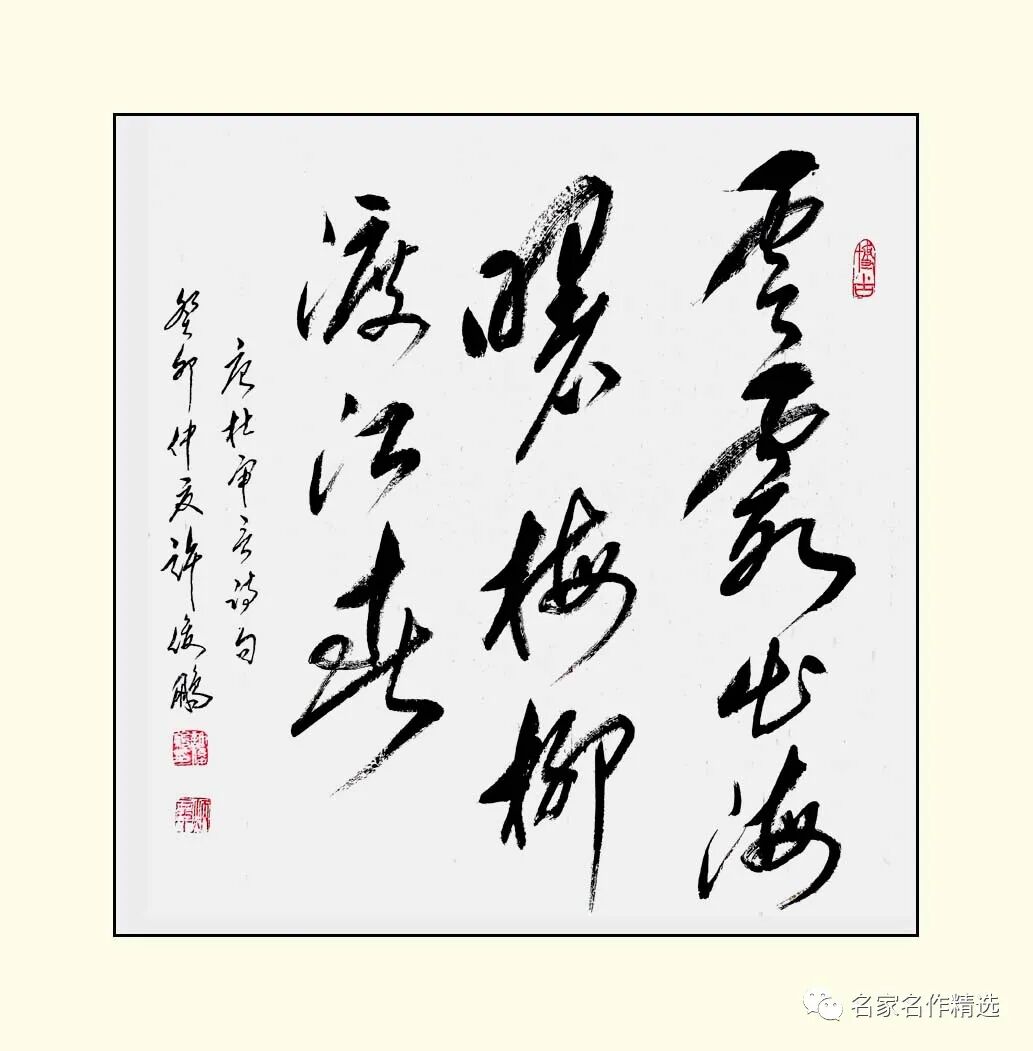 云霞出海
曙梅柳
渡江春
唐杜审言诗句
癸卯仲夏许俊鹏
博古
名家名作精选